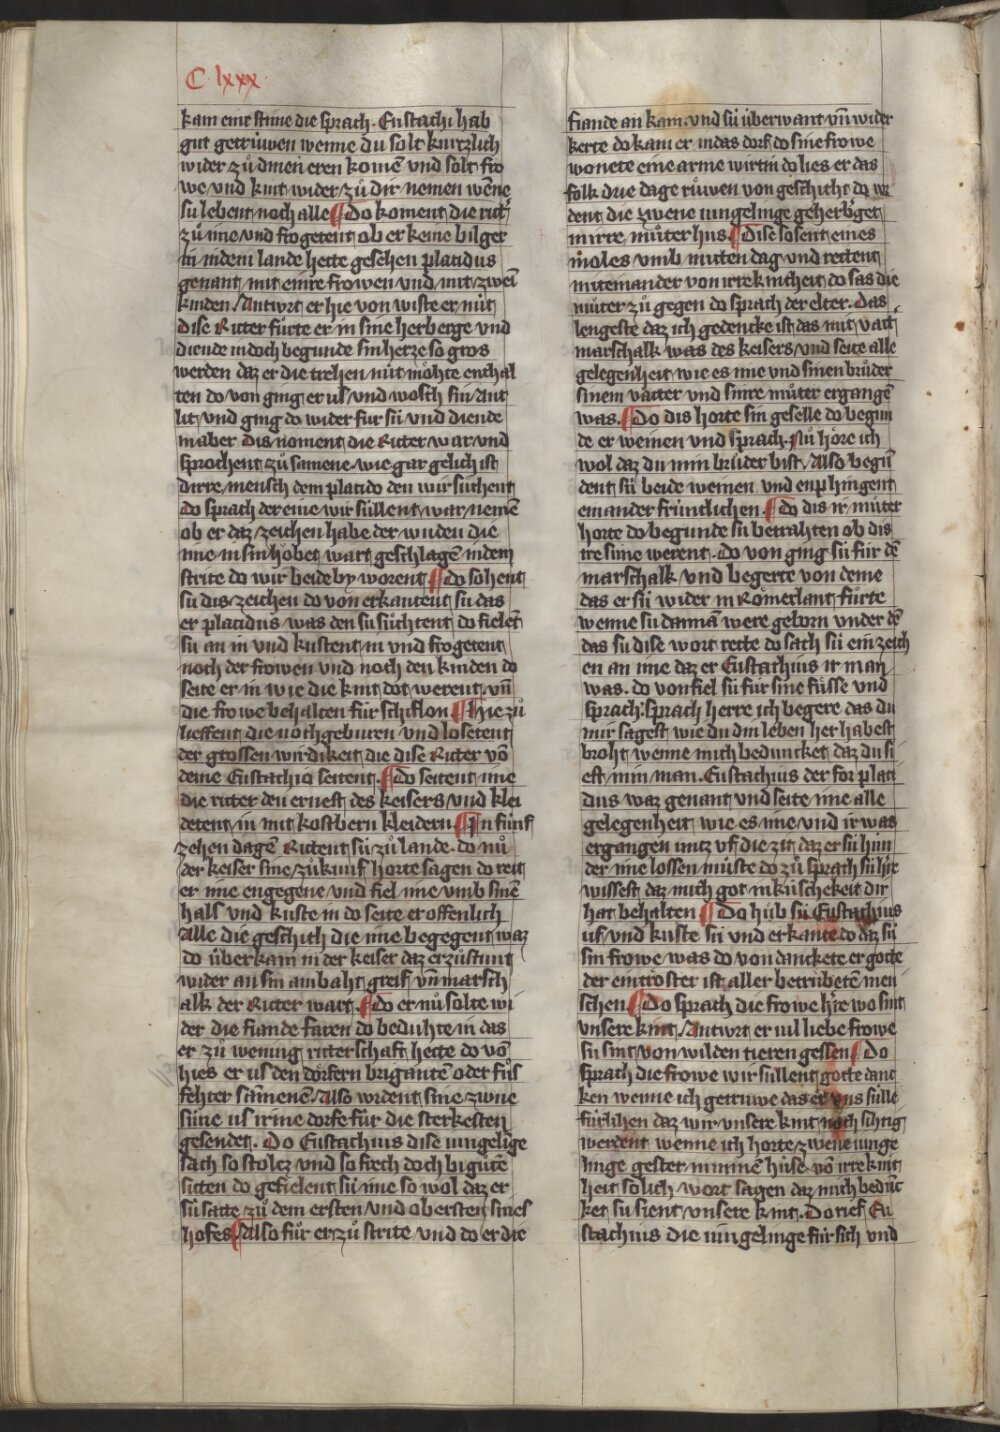 C lxxx
kam eine stime die sprach. Eustachi hab
gut getrúwen wenne du solt kurtzlich
wider zů dinen eren komē und solt fro
we und kint wider zů dir nemen wēne
sú lebent noch alle ¶ Do koment die ritt̾
zů ime und frogetent ob er keine bilger
in indem lande hette gesehen placidus
genant mit einre frowen und mit zwein
kinden / Antwurt er hie von wiste er nút
Dise Ritter fůrte er in sine herberge und
diende in doch begunde sin herze so gros
werden daz er die trehen nút möhte enthal
ten do von ging er us und wosch sin Ant
lit und ging do wider fur sú und diende
in aber Dis noment die Ritter war und
sprochent zů samene wie gar gelich ist
dirre mensch dem placido den wir sůchent
Do sprach der eine wir súllent war nemē
ob er daz zeichen habe der wuden die
ime in sin höbet wart geschlagē in dem
strite do wir beide by worent ¶ Do sohent
sú dis zeichen do von erkantent sú das
er placidus was den sú sůchtent do fielēt
sú an in und kustent in und frogetent
noch der frowen und noch den kinden do
seite er in wie die kint dot werent un̄
die frowe behalten fúr schiflon ¶ Hie zů
lieffent die nochgeburen und losetent
der grossen wirdikeit die dise Ritter vō
deme Eustachio seitent. ¶ Do seitent ime
die ritter den ernest des keisers und klei
detent in mit kostbern kleidern ¶ In fúnf
zehen dagē Rittent sú zů lande. do nů
der keiser sine zůkunf horte sagen do reit
er ime engegene und fiel ime umb sinē
hals und kuste in do seite er offenlich
Alle die geschith die ime begegent waz
do úberkam in der keiser daz er zůstunt
wider an sin ambaht greif un̄ marsch
alk der Ritter wart. ¶ Do er nů solte wi
der die fiande faren do beduhte in das
er zů wening ritterschaft hette do vō
hies er us den dörfern brigantē oder fůs
fehter sāmenē / Also wrdent sine zwne
súne us irme dorfe fúr die sterkesten
gesendet. Do Eustachius dise iungelīge
sach so stoltz und so frech doch bi gutē
sitten do gefielent sú ime so wol daz er
sú satte zů dem ersten und obersten sines
hofes ¶ Also fůr er zů strite und do er die
fiande an kam. und sú úberwant un̄ wider
kerte do kam er in das dorf do sine frowe
wonete eine arme wirtin do lies er das
folk drie dage růwen von geschiht do w
dent die zwene iungelinge geherb̾get
in irre můter hus ¶ Dise sosent eines
moles umb mitten dag und rettent
miteinander von irre kintheit do sas die
můter zů gegen do sprach der elter. Das
lengeste daz ich gedencke ist das min vatt̾
marschalk was des keisers und seite alle
gelegenheit wie es ime und sinen brůder
sinem vatter und sinre můter ergangē
was. ¶ Do dis horte sin geselle do begun
de er weinen und sprach. Nů höre ich
wol daz du min brůder bist / Also begū
dent sú beide weinen und enphingent
einander frúntlichen. ¶ Do dis ir můter
horte do begunde sú betrahten ob dis
ire súne werent. Do von ging sú fúr dē
marschalk und begerte von deme
das er sú wider in Römerlant fůrte
wenne sú dannā were geborn under dē
das sú dise wort rette do sach sú ein zeich
en an ime daz er Eustachius ir man
was. do von fiel sú fúr sine fůsse und
sprach: sprach herre ich begere das du
mir sagest wie du din leben her habest
broht wenne mich beduncket daz du si
est min man. Eustachius der for placi
dus waz genant und seite ime alle
gelegenheit wie es ime und ir was
ergangen untz uf die zit daz er sú hin
der ime lossen můste do zů sprach sú h̾re
wissest daz mich got in kúschekeit dir
hat behalten ¶ Do hůb sú Eustachius
uf und kuste sú und erkante do daz sú
sin frowe was do von danckete er gotte
der ein tröster ist aller betrůbetē men
schen ¶ Do sprach die frowe h̾re wo sint
unsere kint / Antwrt er vil liebe frowe
sú sint von wilden tieren gessen ¶ Do
sprach die frowe wir súllent gotte danc
ken wenne ich getruwe das er uns súlle
fúrlihen daz wir unsere kint noch sihtig
werdent wenne ich horte zwene iunge
linge gester in minē huse vō irre kint
heit solich wort sagen daz mich bedūc
ket sú sient unsere kint. Do rief Eu
stachius die iungelinge fúr sich und